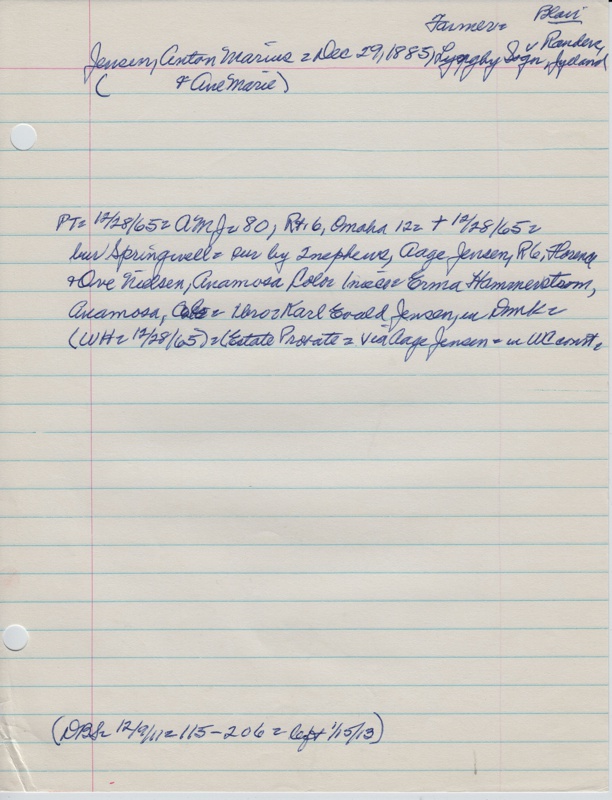 Farmer= Blair
Jensen, Anton Marius = Dec 29, 1885, Lyngby Sogn v Randers, Jylland
( & Ane Marie)
PT= 12/28/65= AMJ= 80, Rt. 6, Omaha 12= + 12/28/65=
bur Springwell= sur by 2 nephews, Aage Jensen, R6, Florence
& Ove Nielsen, Anamosa Colo= 1 niece= Erma Hammerstrom,
Anamosa, Colo= 1 bro= Karl Evald Jensen, in Dmk=
(WH= 12/28/65)= (Estate Probate= via Aage Jensen= in WC court=
(DBS= 12/9/11= 115-206= left 1/15/13)